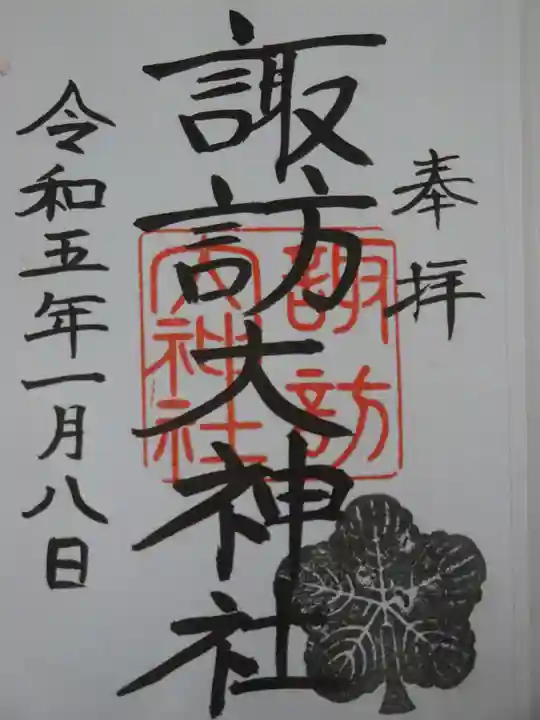 奉拝
諏訪大神社
諏訪
大神社
令和五年一月八日